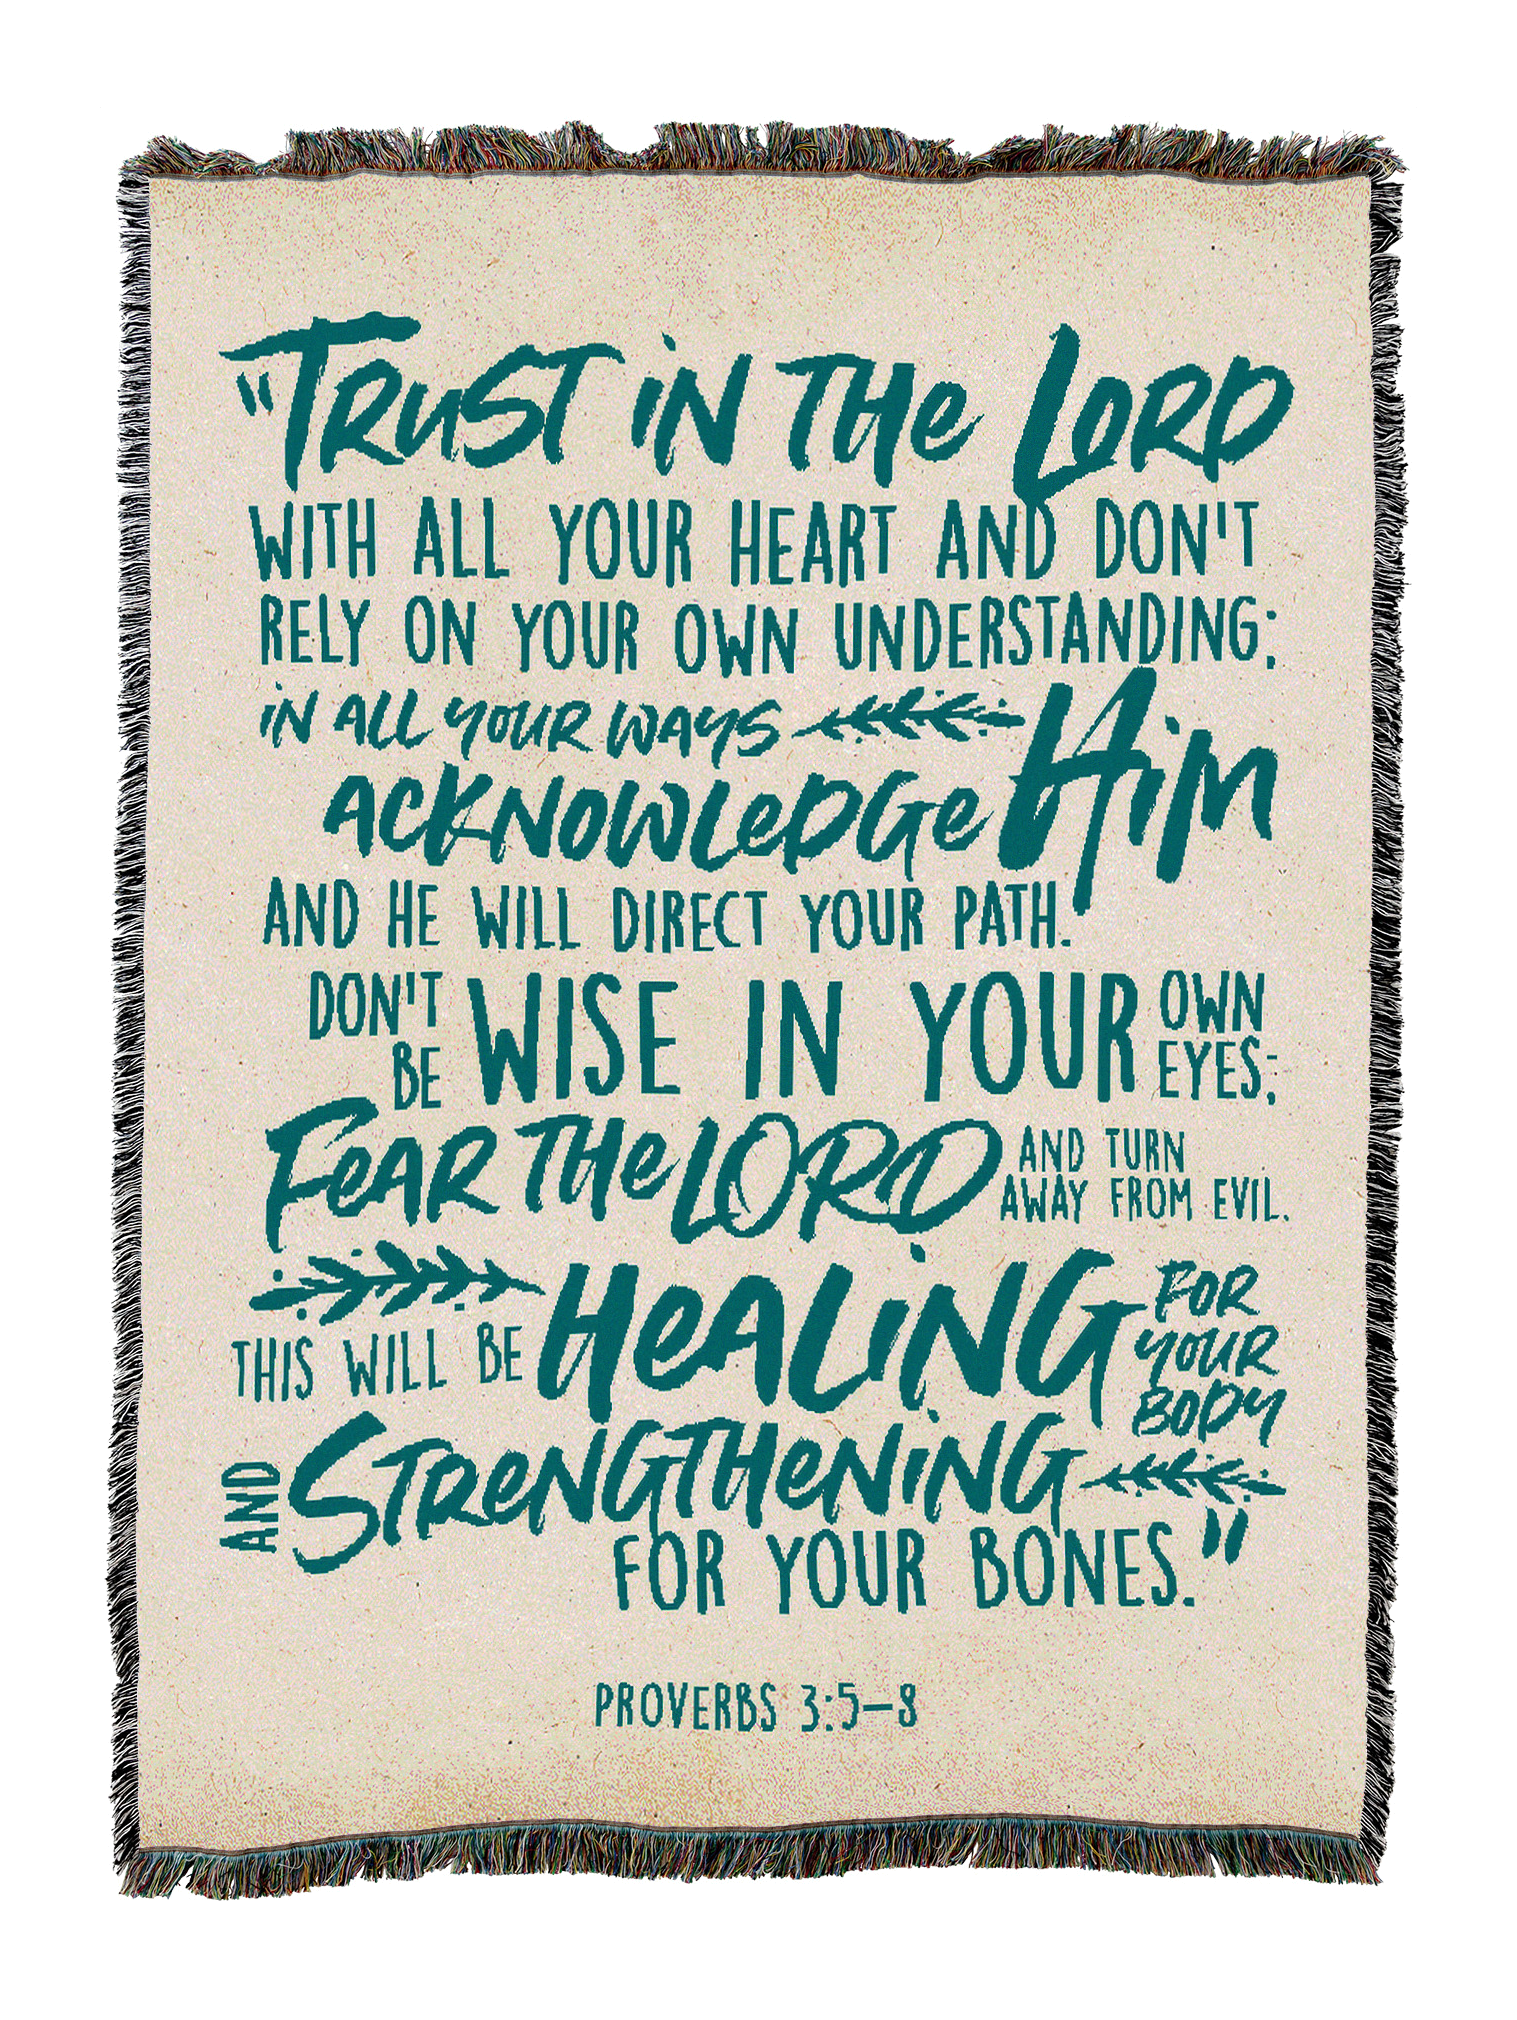 "Trust in the Lord
WITH ALL YOUR HEART AND DON'T
RELY ON YOUR OWN UNDERSTANDING;
in ALL YOUR WAYS
ACKNOWLeDGe Him
AND HE WILL DIRECT YOUR PATH.
DON'T BE WISE IN YOUR OWN EYES;
FeAR THe LORD AND TURN
AWAY FROM EVIL.
THIS WILL BE HeALiNG FOR YOUR BODY
AND STReNGTHeNiNG
FOR YOUR BONES."
PROVERBS 3:5–8